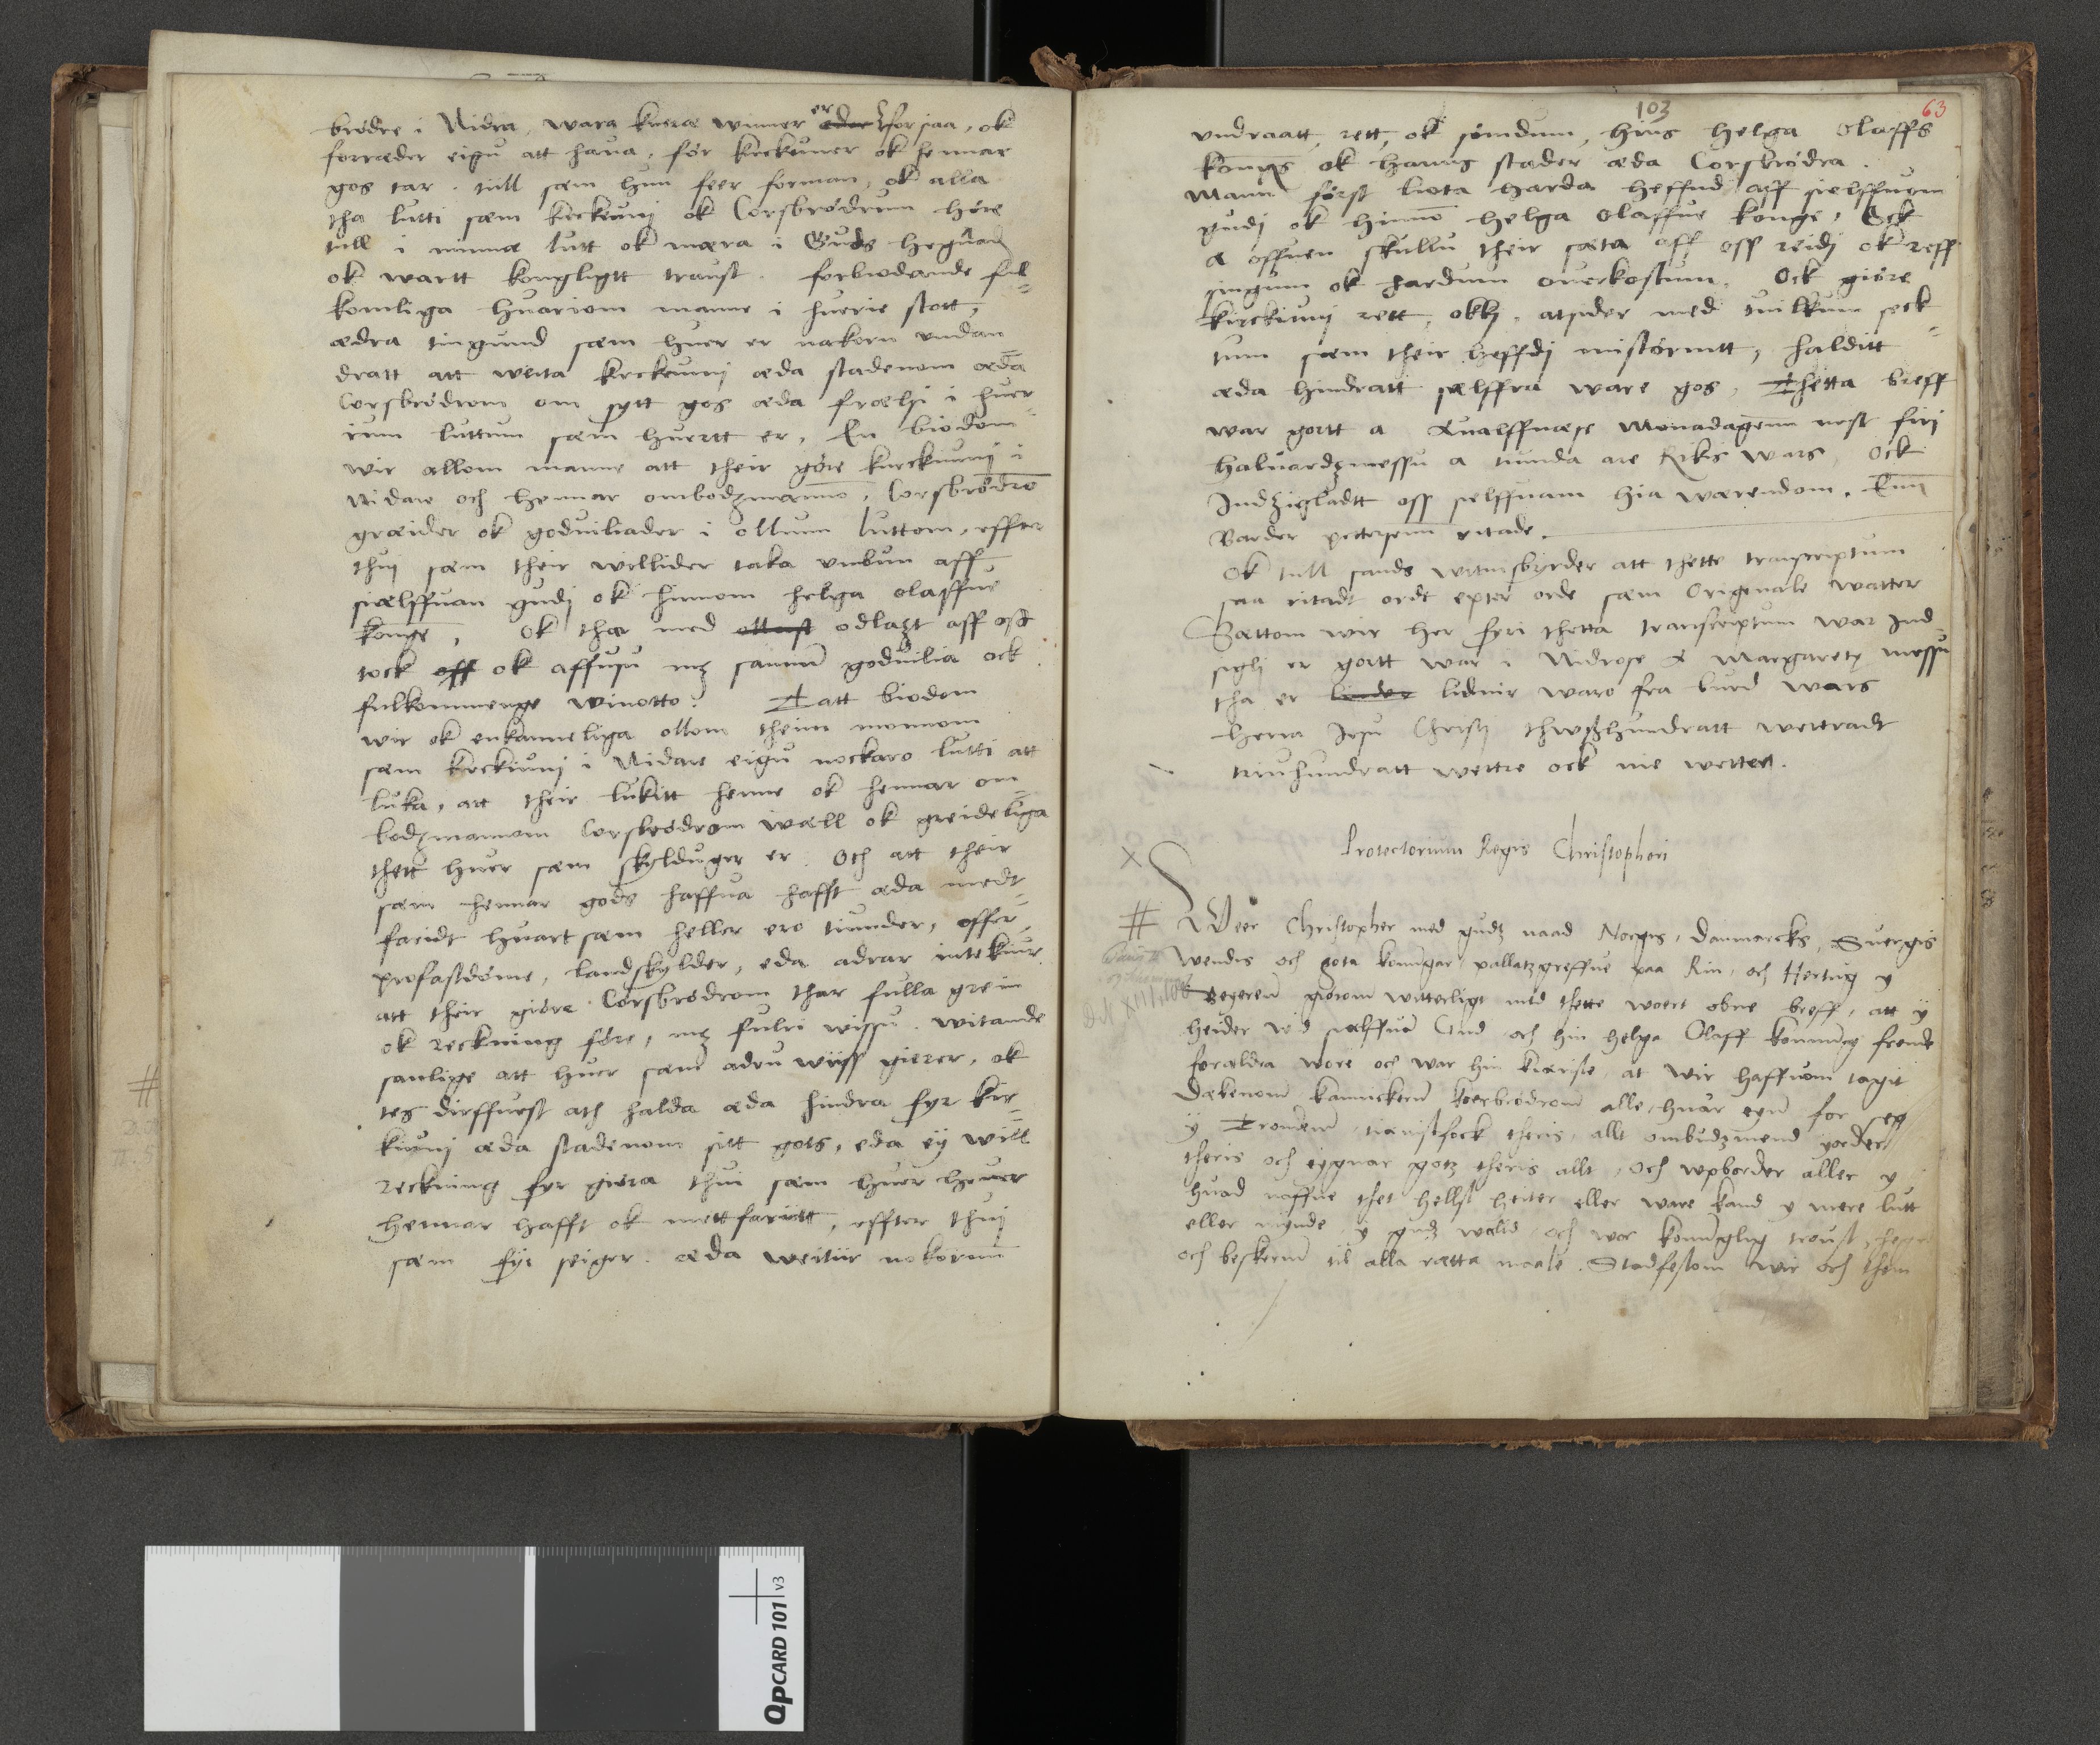 brødre i Nidra, wara kieræ winner er forsiaa, ok
forræder eigu att haua, for kirckiuner ok hennar
gos tar. till sæm hun feer forman, ok alla
tha lutti sæm kirckiuni ok Corsbrødrum høre
till i minna lutt ok mæra i Guds hegnad
ok wartt kongligtt traust. forbiodande ful=
komliga huariom manne i huerie stott,
ædra tingund sæm huer er nakorn undan=
dratt att weita kirckiunij æda stadenom æda
Corsbrødrom om sytt gos æda frælsi i huer=
ium luttum sæm huertt er, En biodom
wir allom manne att their gøre kirckiunij i
Nidare och hennar ombodzmanno, Corsbrødro
græider ok goduiliader i ollum luttom, effter
thuj sæm their willider taka umbun aff
siælffuan gudj ok hinnom helga olaffue
konge, Ok thar med ottast odlazt aff oss
tock off ok affusu mz sannu goduilia ock
fulkommenge winotto? Þatt biodom
wir ok enkanneliga ollom theim monnom
sæm kirckiunj i Nidare eigu nockaro lutti att
luka, att their lukitt henne ok hennar om=
bodzmannom Corsbrødrom wæll ok greideliga
thett huer sæm skyldugr er. Och att their
sæm hennar gods haffua hafft æda medt=
faridt huart sæm heller ero tiunder, offer,
profastdøme, landskylder, eda adrar intekiur
att their giøre Corsbrødrom thar fulla grein
ok reckning føre, mz fulri wissu. witande
sanlige att huer sæm adru wiiss gierer, ok
tes dirffuest ath halda æda hindra fyr kir=
kiunj æda stadenom sitt gots, eda ey will
reckning fyr giøra thui sæm huer heuer
hennar hafft ok mettfaritt, effter thuj
sæm fyr seiger. æda weitir nokorom
103
63
undraatt, rett, ok sømdum, hins helga Olaffs
kongs ok hanns stader æda Corsbrødra.
Mann først liota harda heffnd aff sielffuom
gudj ok hinno helga Olaffue konge, Ock
a offuen skullu their sæta aff oss reidj ok reff=
singum ok hardum auerkostum. Ock giøre
kirckiunj rett, okkz, atsider med tuilkum seck=
tum sæm their heffdj mistørmtt, halditt
æda hindratt sælffra ware gos, Thetta breff
war gortt a Qualffnæse Monadagenn nest firj
haluardzmessu a tiunda are Rikis wars, Ock
Indziglædtt oss sielffuam hia wærendom. Enn
Barder pettersenn ritade.
Ok till sands witnisbyrder att thette transcriptum
saa ritadt ordt epter orde sæm Originale watter
Sættom wir her fyri thetta transcriptum war Ind=
sigli er gortt war i Nidrose A Margarety messu
tha er lidnir waro fra burd wars
Herra Jesu Christj thwshundratt wettradt
triuhundratt wettre ock nie wetter.
Protectorium Regis Christopheri
X
# Weer Christopher med gudz naad Norgis, Danmarcks, Suergis
Wendis och gota konungar, pallatzgreffue paa Rin, och Hertug y
Beyeren giørom witterligt med thette woert obne breff, att y
heider wid siælffuen Gud och hin helga Olaff konnung frende
forældra wore och war hin kiæriste, at wir haffuom tagit
Dækenom kannickern koerbrødrom alle, huar eyn for seg
y Trondem, tiænistfock theris, allt ombudzmend, jorder
theris och eygnar gotz theris allt, och wpborder aller y
huad naffne thet hellst heiter eller ware kand y mere lutt
eller mynde y gudz wald, och wor konunglig troust, hegn
och beskerm til alla rætta maale. Stadfestom wir och them
DN XIII, 100
#